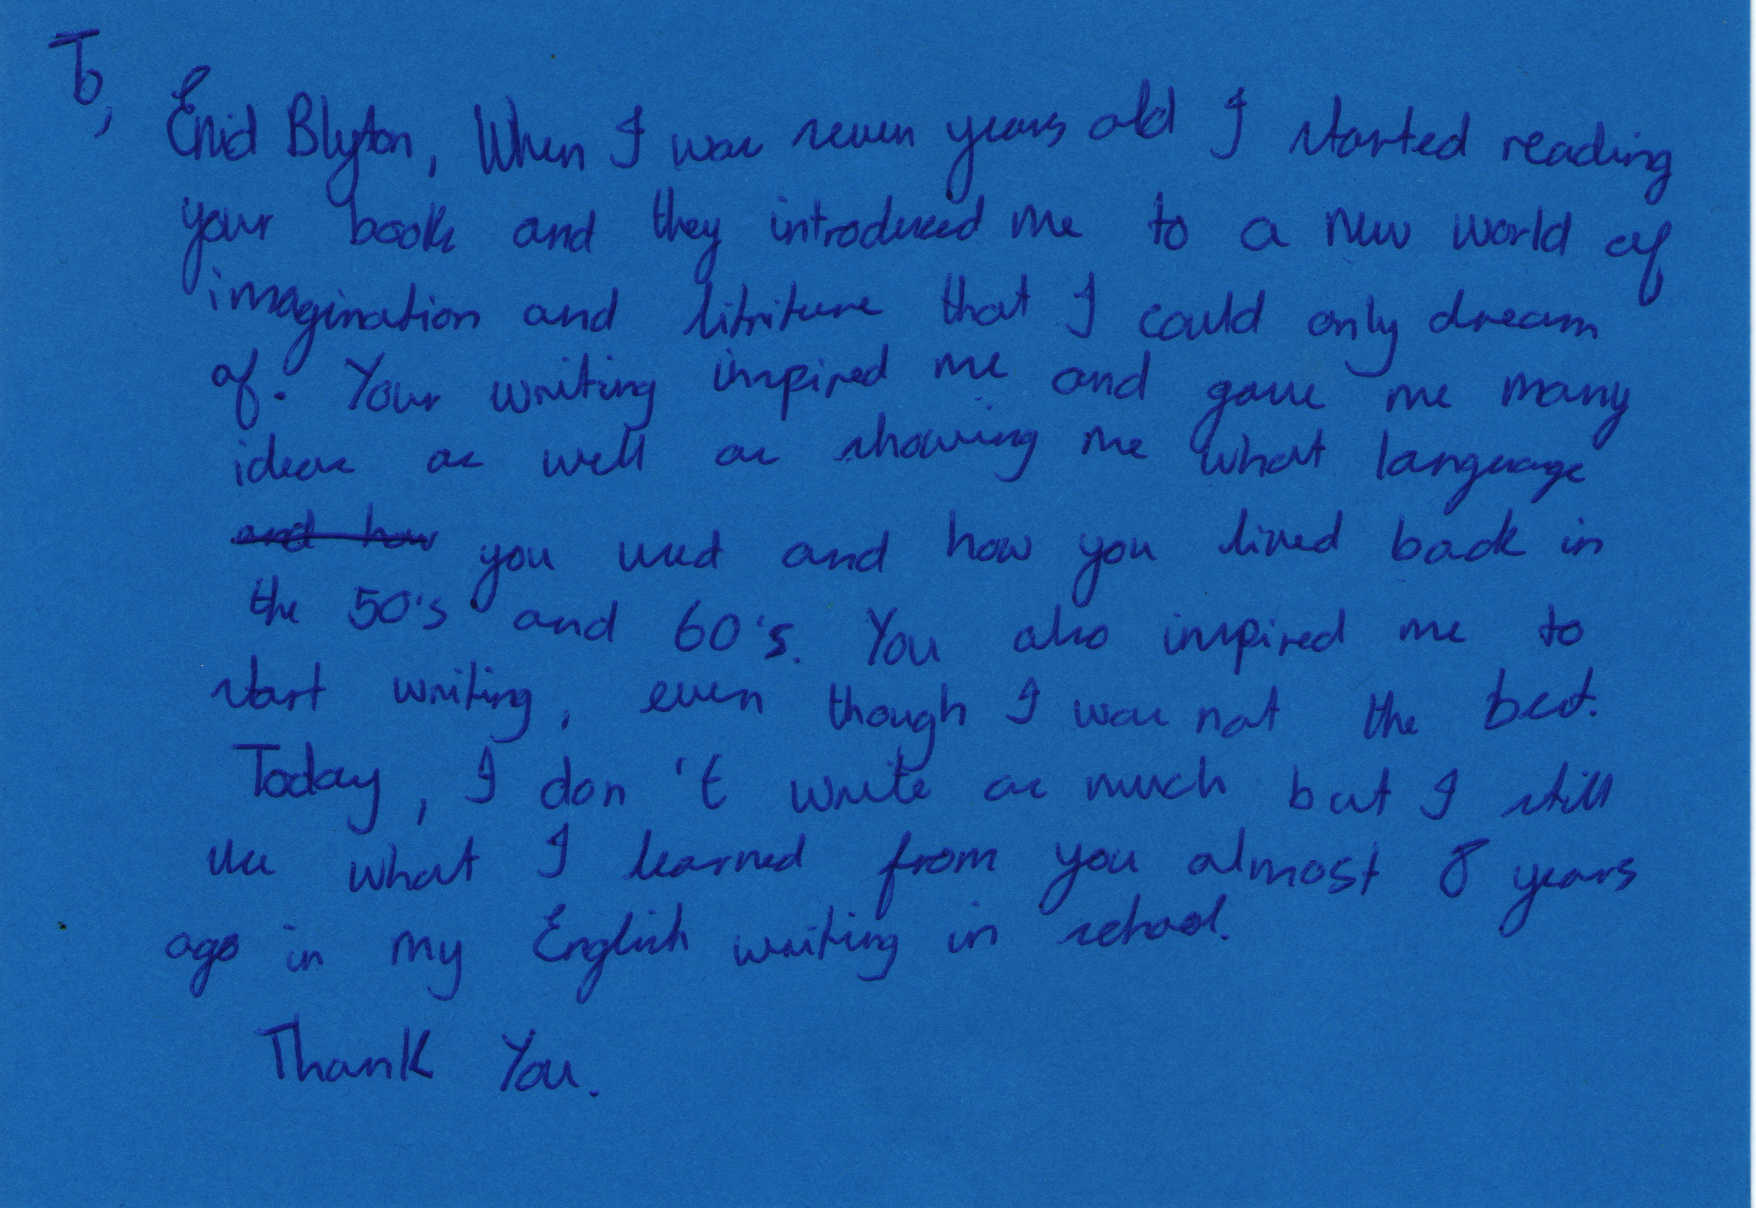 To,
Enid Blyton, When I was seven years old I started reading
your books and they introduced me to a new world of
imagination and litriture that I could only dream
of. Your writing inspired me and gave me many
ideas as well as showing me what language
and how you used and how you lived back in
the 50's and 60's. You also inspired me to
start writing, even though I was not the best.
Today, I don't write as much but I still
use what I learned from you almost 8 years
ago in my English writing in school.
Thank You.